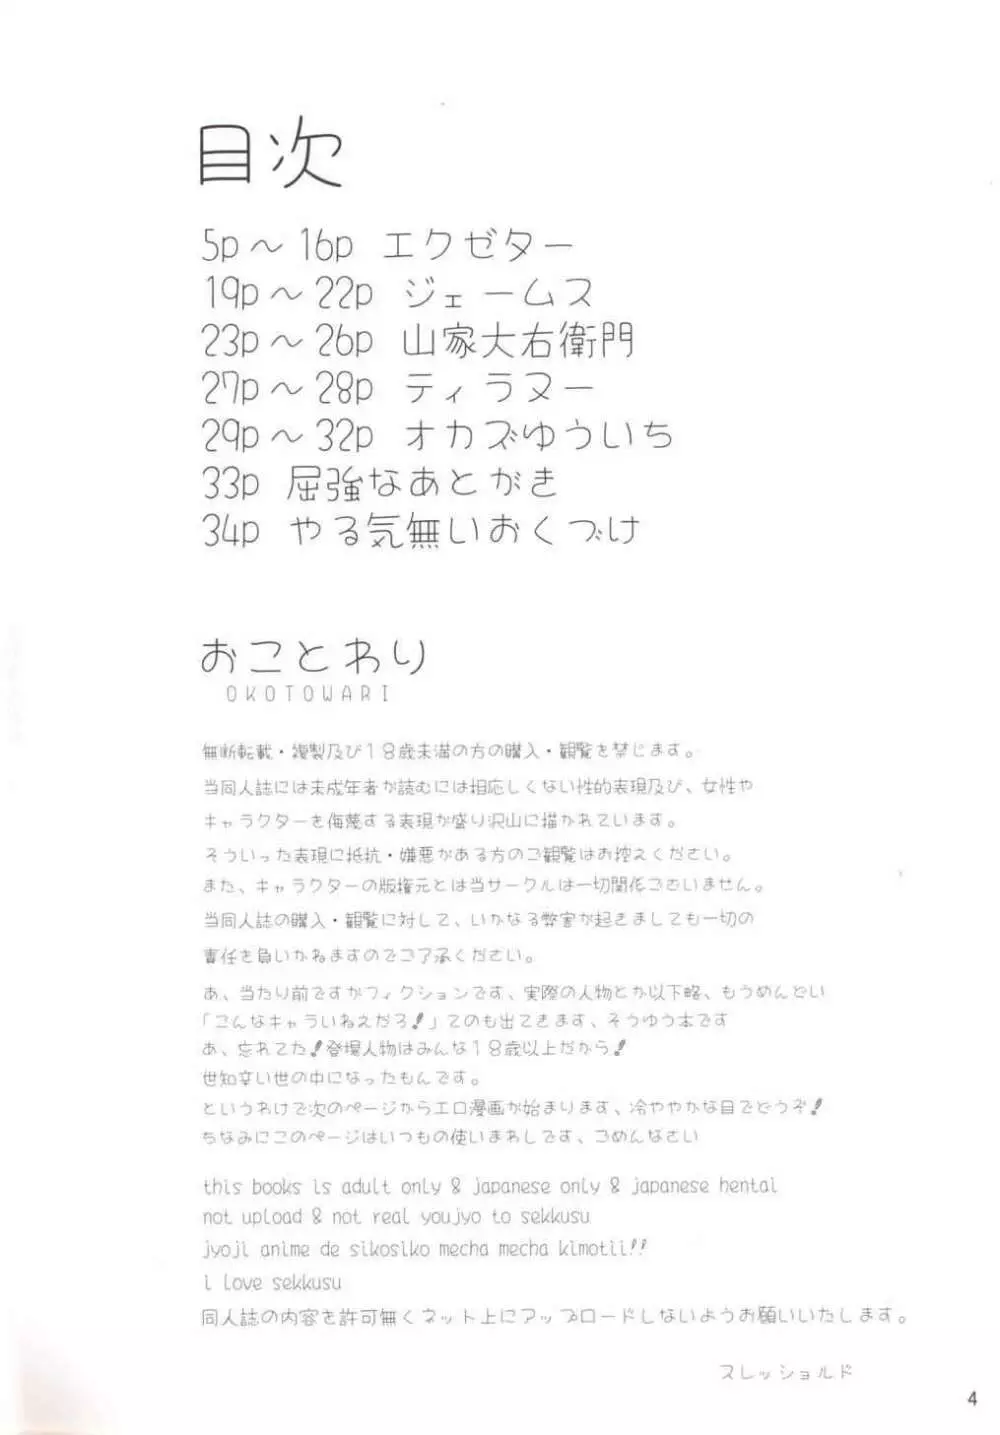 目次
5p～16p エクゼター
19p～22p ジェームス
23p～26p 山家大右衛門
27p～28p ティラヌー
29p～32p オカズゆういち
33p 屈強なあとがき
34p やる気無いおくづけ
おことわり
OKOTOWARI
無断転載・複製及び18歳未満の方の購入・観覧を禁じます。
当同人誌には未成年者が読むには相応しくない性的表現及び、女性や
キャラクターを侮蔑する表現が盛り沢山に描かれています。
そういった表現に抵抗・嫌悪がある方のご観覧はお控えください。
また、キャラクターの版権元とは当サークルは一切関係ございません。
当同人誌の購入・観覧に対して、いかなる弊害が起きましても一切の
責任を負いかねますのでご了承ください。
あ、当たり前ですがフィクションです、実際の人物とか以下略、もうめんどい
「こんなキャラいねえだろ！」てのも出てきます、そうゆう本です
あ、忘れてた！登場人物はみんな18歳以上だから！
世知辛い世の中になったもんです。
というわけで次のページからエロ漫画が始まります、冷ややかな目でどうぞ！
ちなみにこのページはいつもの使いまわしです、ごめんなさい
this books is adult only & japanese only & japanese hentai
i love sekkusu
同人誌の内容を許可無くネット上にアップロードしないようお願いいたします。
スレッショルド
4